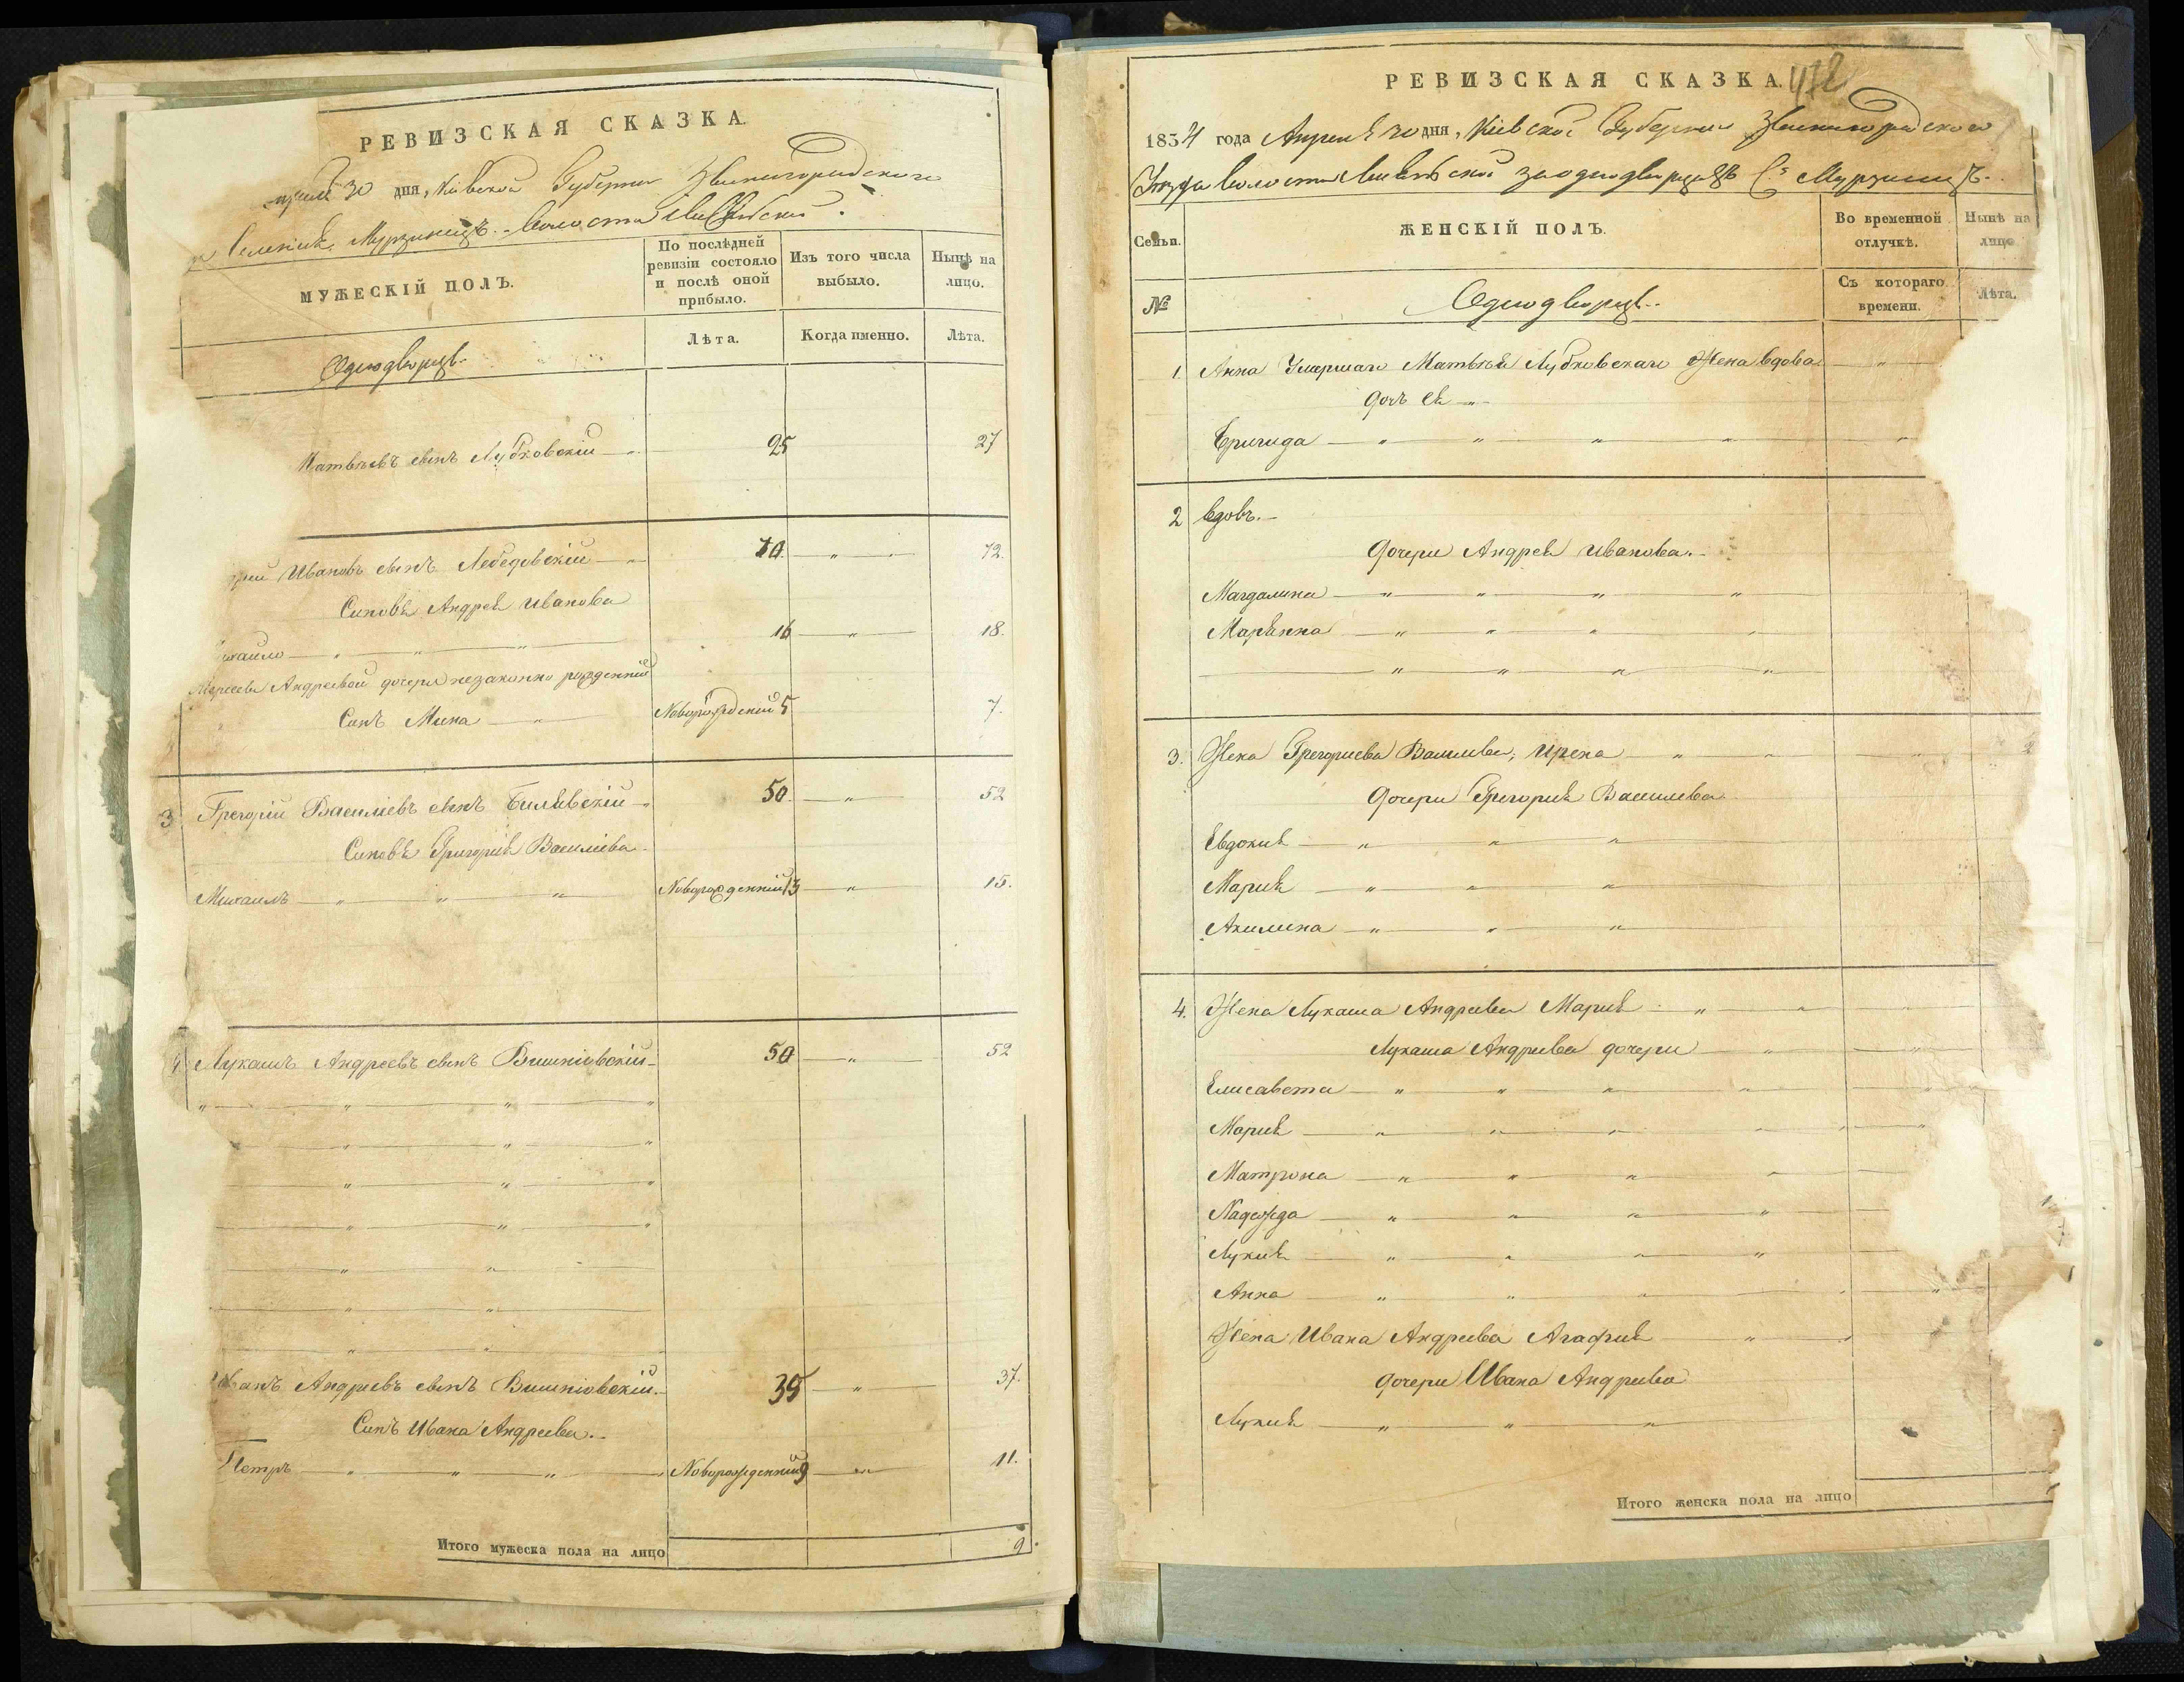 РЕВИЗСКАЯ СКАЗКА.
30 дня, Кіевской Губерніи Звенигородскаго
Мурзинецъ. Волости
МУЖЕСКІЙ ПОЛЪ.
По послѣдней ревизіи состояло и послѣ оной прибыло.
Изъ того числа выбыло.
Нынѣ на лицо.
Лѣта.
Когда именно.
Лѣта.
Однодворцы.
Матвѣевъ сынъ Лубковскій 25 27
Ивановъ сынъ Лебедовскій 70 " 72.
Синовя Андрея Иванова
хаило " " " 16 " 18.
Андреевой дочери незаконно рожденній
" Синъ Мина " Новорожденій 5 7.
3 Грегорій Василіевъ сынъ Билявскій " 50. " 52
Синовя Григорія Василіева
Михаилъ " " " Новорожденній 13 " 15.
4 Лукашъ Андреевъ сынъ Вишніовскій 50 " 52
" " " "
" " "
" " "
" " "
" "
" "
" "
Иванъ Андреевъ сынъ Вишніовскій. 35 " 37.
Синъ Ивана Андреева.
Петръ " " " Новорожденній 9 " 11.
Итого мужеска пола на лицо 9.
РЕВИЗСКАЯ СКАЗКА.
472
1834 года Апреля 30 дня, Кіевской Губерніи Звенигородского
Уезда Волости однодворцахъ С: Мурзинцъ.
Семьи.
ЖЕНСКІЙ ПОЛЪ.
Во временной отлучкѣ.
Нынѣ на лицо
№
Однодворцы.
Съ котораго времени.
Лѣта.
1. Анна Умаршаго Матвѣя Лубковскаго Жена вдова "
Дочъ Ея "
Бригида " " " " "
2 Вдовъ.
Дочери Андрея Иванова.
Магдалина " " " "
Марянна " " " "
" " " "
3. Жена Грегориева Василева, Ирена " "
Дочери Григорія Василиева
Евдокия " " "
Мария " " "
Акилина " " "
4. Жена Лукаша Андреева Мария " "
Лукаша Андреева дочери " "
Елисавета " " " " "
Мария " " " " " "
Матрона " " " "
Надежда " " " "
Лукия " " " "
Анна " " " " "
Жена Ивана Андреева Агафия " "
Дочери Ивана Андреева
Лукия " " "
Итого женска пола на лицо